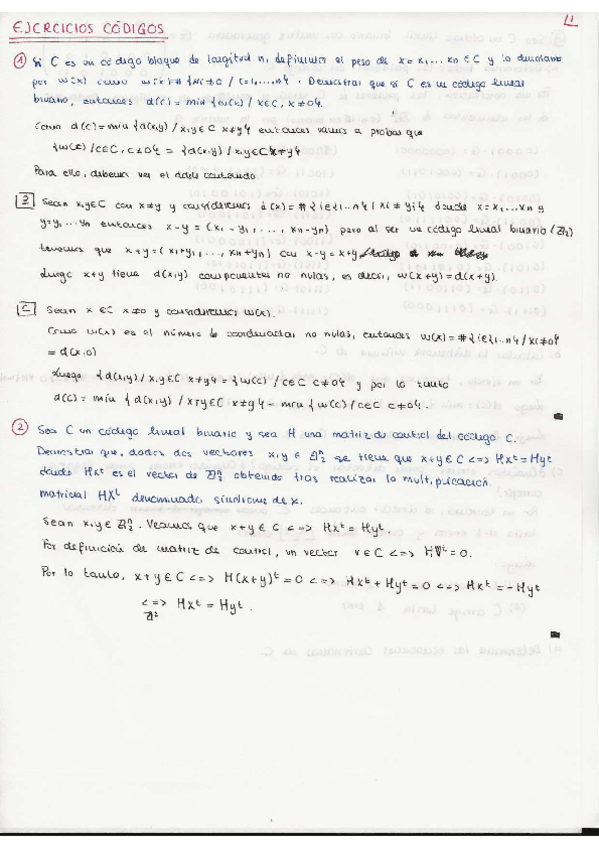 EJERCICIOS CÓDIGOS
1
① Si C es un código bloque de longitud n, definimos el peso de x = x1... xn ∈ C y lo denotamos
por w(x) como w(x) = #{xi ≠ 0 / i=1,...,n}. Demostrar que si C es un código lineal
binario, entonces d(C) = min {w(x) / x∈C, x≠0}.
Como d(C) = min {d(x,y) / x,y∈C x≠y} entonces vamos a probar que
{w(c) / c∈C, c≠0} = {d(x,y) / x,y∈C x≠y}
Para ello, debemos ver el doble contenido.
⊇ Sean x,y∈C con x≠y y consideremos d(x) = #{i∈{1...n} / xi ≠ yi} donde x = x1...xn y
y=y1...yn entonces x-y = (x1-y1, ..., xn-yn) pero al ser un código lineal binario (Z2)
tenemos que x+y = (x1+y1, ..., xn+yn) con x-y = x+y
luego x+y tiene d(x,y) componentes no nulas, es decir, w(x+y) = d(x+y).
⊆ Sean x∈C x≠0 y consideremos w(x).
Como w(x) es el número de coordenadas no nulas, entonces w(x) = #{i∈{1...n} / xi≠0}
= d(x,0)
Luego {d(x,y) / x,y∈C x≠y} = {w(c) / c∈C c≠0} y por lo tanto
d(C) = min {d(x,y) / x,y∈C x≠y} = min {w(c) / c∈C c≠0}.
② Sea C un código lineal binario y sea H una matriz de control del código C.
Demostrar que, dados dos vectores x,y ∈ Z2ⁿ se tiene que x+y∈C <=> Hxᵗ = Hyᵗ
donde Hxᵗ es el vector de Z2ⁿ obtenido tras realizar la multiplicación
matricial HXᵗ denominado síndrome de x.
Sean x,y∈ Z2ⁿ. Veamos que x+y∈C <=> Hxᵗ = Hyᵗ.
Por definición de matriz de control, un vector v∈C <=> HVᵗ = 0.
Por lo tanto, x+y∈C <=> H(x+y)ᵗ = 0 <=> Hxᵗ + Hyᵗ = 0 <=> Hxᵗ = -Hyᵗ
<=> Hxᵗ = Hyᵗ.
Z2